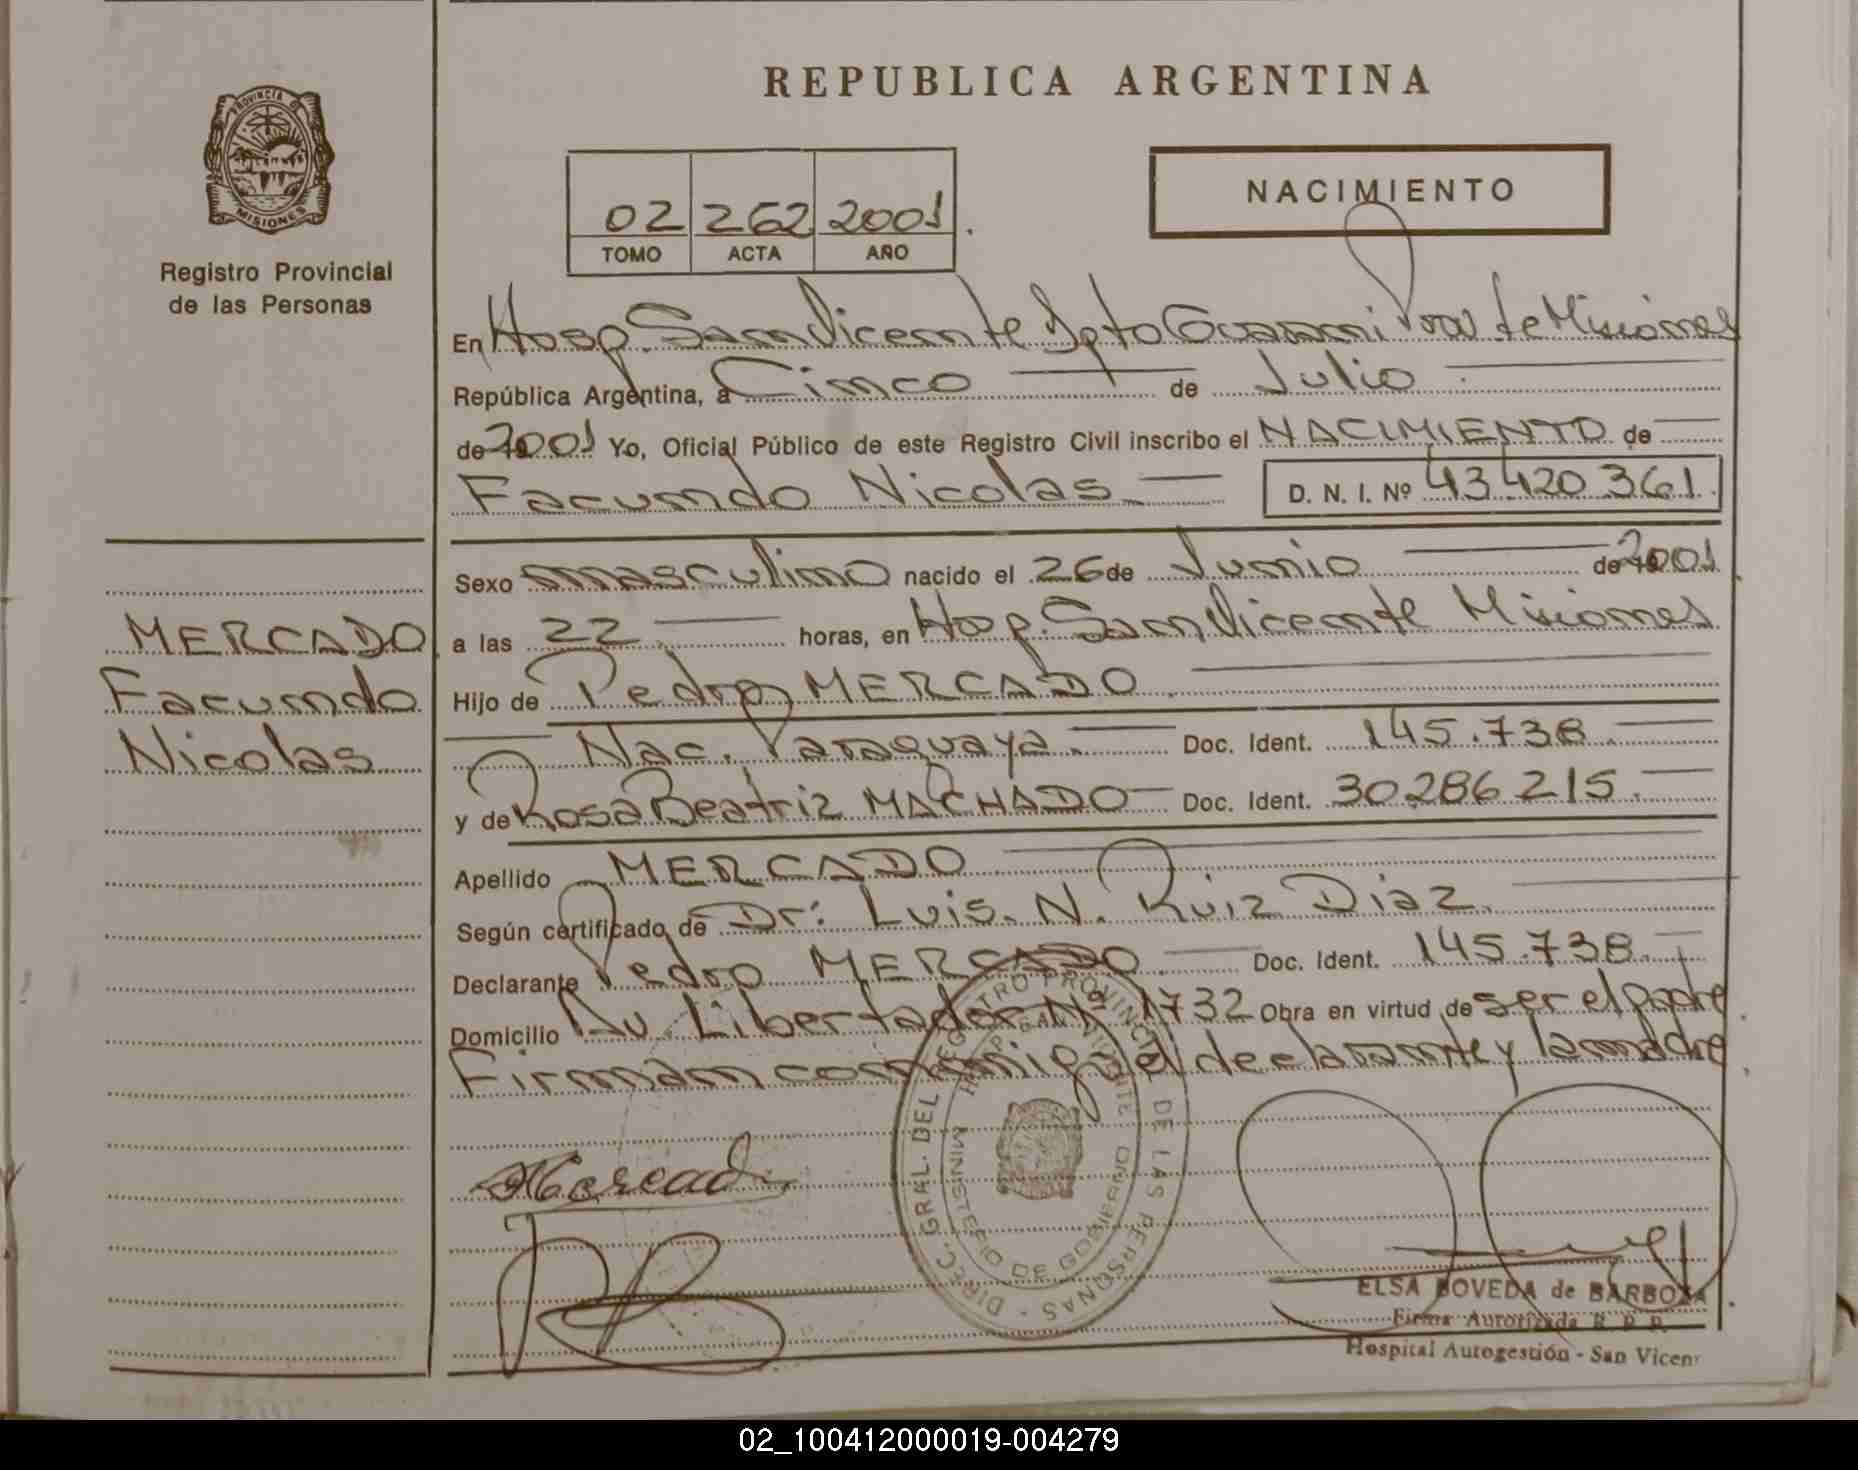 REPUBLICA ARGENTINA
PROVINCIA DE
MISIONES
Registro Provincial
de las Personas
02 262 2001.
TOMO ACTA AÑO
NACIMIENTO
En Hosp. San Vicente Dpto Guarani Pcia de Misiones
República Argentina, a Cinco de Julio
de 2001 Yo, Oficial Público de este Registro Civil inscribo el NACIMIENTO de
Facundo Nicolas D. N. I. Nº 43420361.
Sexo masculino nacido el 26 de Junio de 2001
a las 22 horas, en Hosp. San Vicente Misiones
Hijo de Pedro MERCADO.
Nac. Paraguaya. Doc. Ident. 145.738.
y de Rosa Beatriz MACHADO Doc. Ident. 30286215.
Apellido MERCADO
Según certificado de Dr: Luis. N. Ruiz Diaz.
Declarante Pedro MERCADO. Doc. Ident. 145.738.
Domicilio Av. Libertador Nº 1732 Obra en virtud de ser el padre.
Firman conmigo el declarante y la madre.
MERCADO
Facundo
Nicolas
DIREC. GRAL. DEL REGISTRO PROVINCIAL DE LAS PERSONAS -
MINISTERIO DE GOBIERNO
ELSA BOVEDA de BARBOZA
Firma Autorizada R. P. P.
Hospital Autogestión - San Vicen
02_100412000019-004279